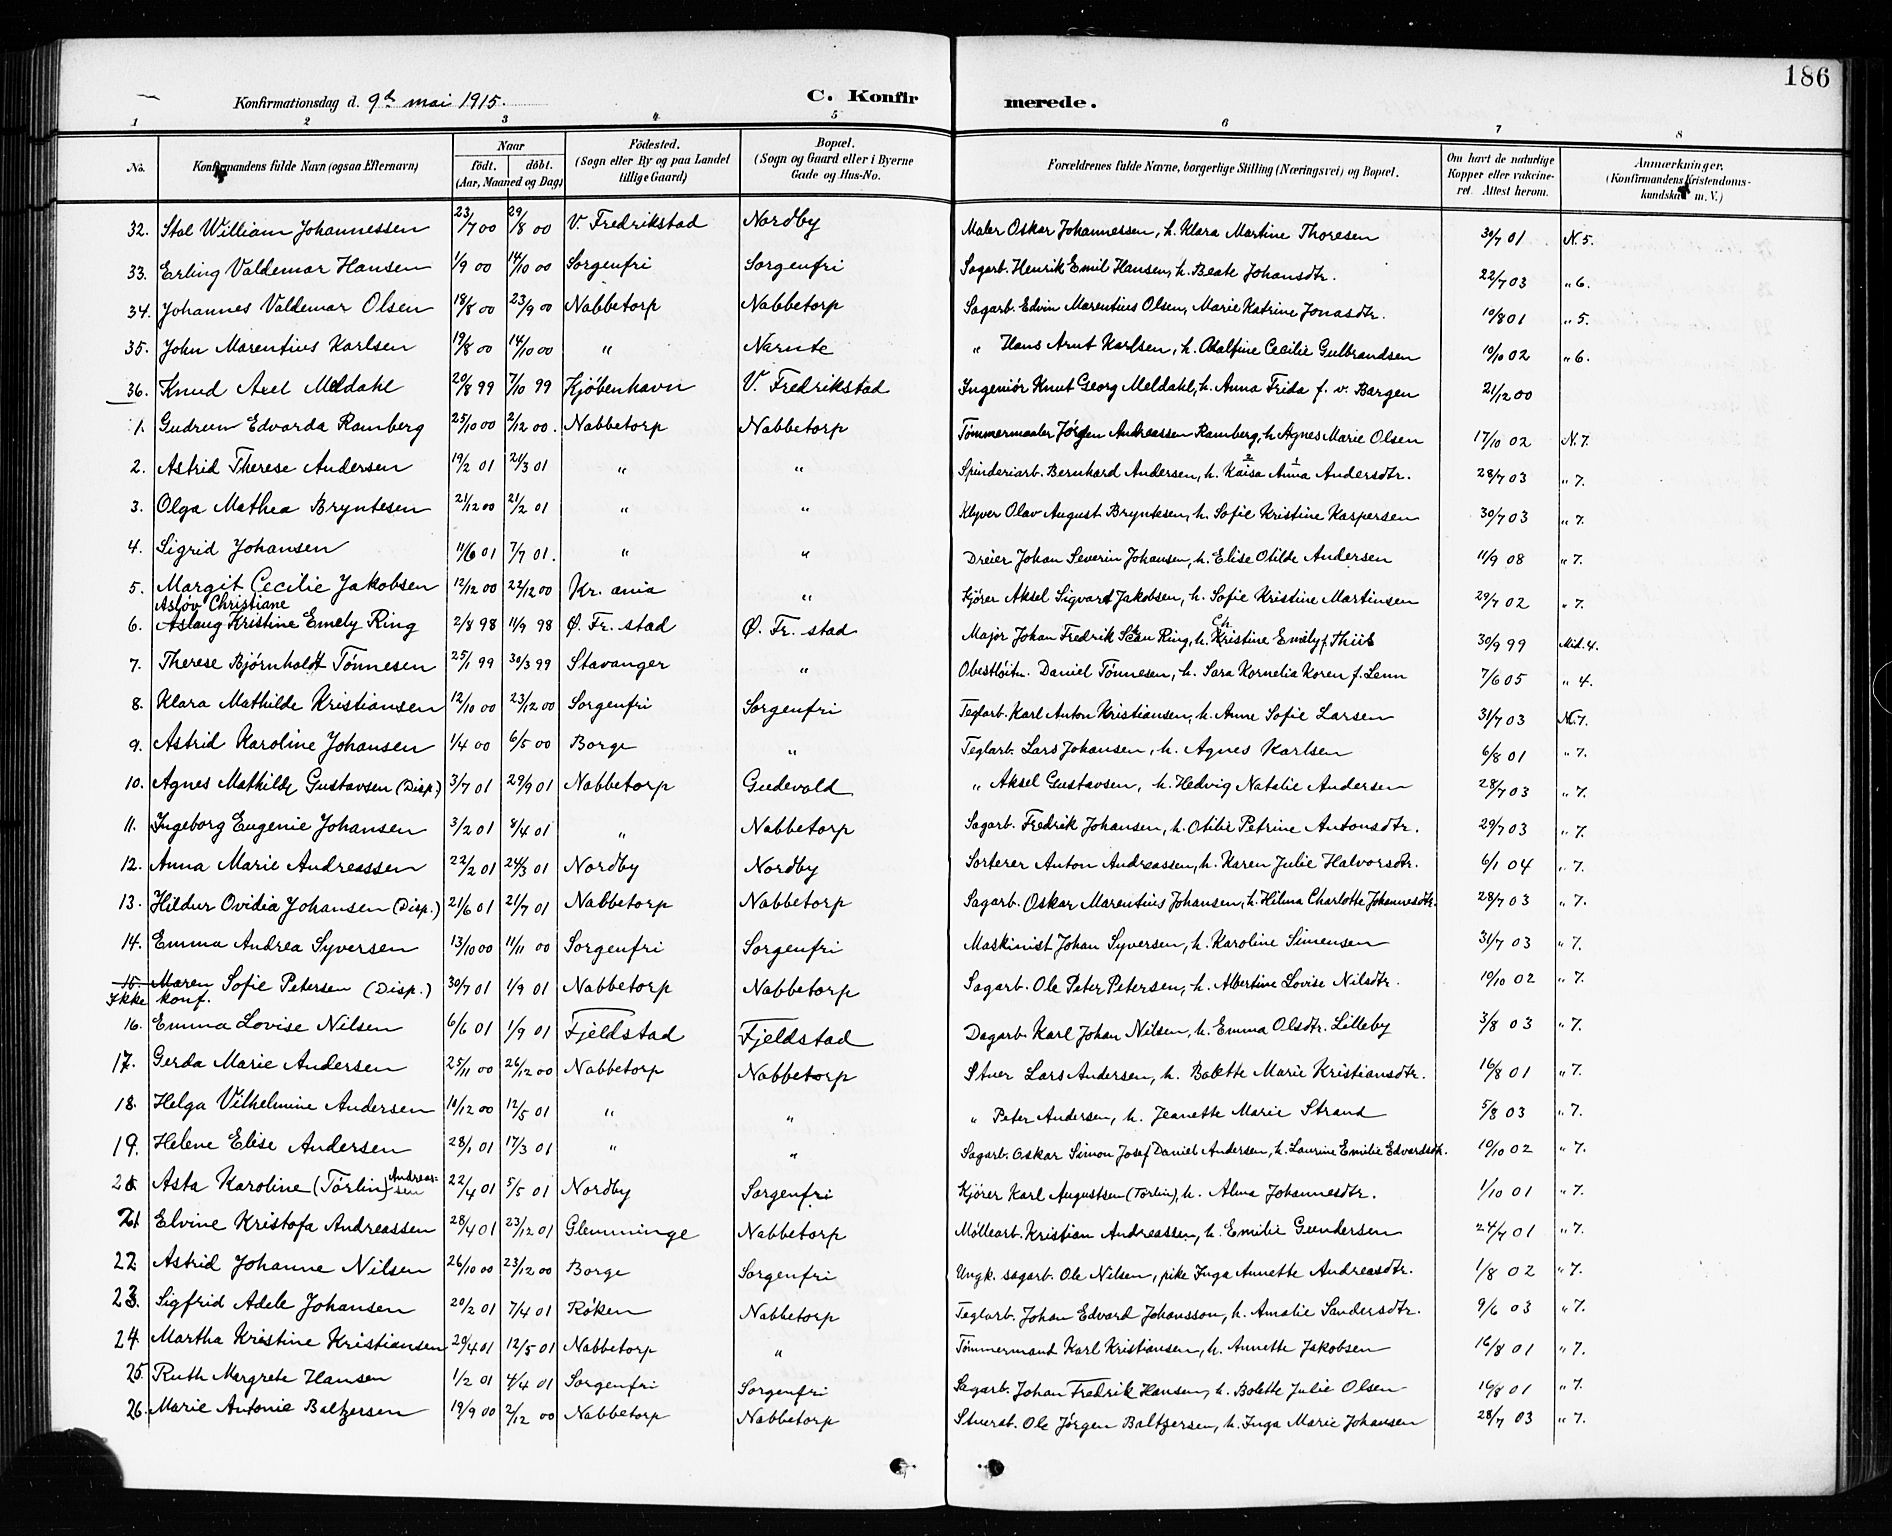 186
Konfirmationsdag d. 9de mai 1915.
C. Konfirmerede.
1 2 3 4 5 6 7 8
No. | Konfirmandens fulde Navn (ogsaa Efternavn) | Naar født. døbt. (Aar, Maaned og Dag) | Fødested. (Sogn eller By og paa Landet tillige Gaard) | Bopæl. (Sogn og Gaard eller i Byerne Gade og Hus-No. | Forældrenes fulde Navne, borgerlige Stilling (Næringsvei) og Bopæl. | Om havt de naturlige Kopper eller vakcineret. Attest herom. | Anmærkninger. (Konfirmandens Kristendomskundskab m. V.)
32. Stal William Johannessen 23/7 00 29/8 00 V. Fredrikstad Nordby Maler Oskar Johannessen, h. Klara Martine Thoresen 30/7 01 N. 5.
33. Erling Valdemar Hansen 1/9 00 14/10 00 Sorgenfri Sorgenfri Sagarb. Henrik Emil Hansen, h. Beate Johansdtr. 22/7 03 " 6.
34. Johannes Valdemar Olsen 18/8 00 23/9 00 Nabbetorp Nabbetorp Sagarb. Edvin Marentius Olsen, Marie Katrine Jonasdtr. 10/8 01 " 5.
35. John Marentius Karlsen 19/8 00 14/10 00 " Narnte " Hans Arnt Karlsen, h. Adolfine Cecilie Gulbrandsen 10/10 02 " 6.
36. Knud Axel Meldahl 20/8 99 7/10 99 Kjøbenhavn V. Fredrikstad Ingeniør Knut Georg Meldahl, h. Anna Frida f. v. Bargen 21/12 00
1. Gudrun Edvarda Ramberg 25/10 00 2/12 00. Nabbetorp Nabbetorp Tømmermaaler Jørgen Andreassen Ramberg, h. Agnes Marie Olsen 17/10 02 N. 7.
2. Astrid Therese Andersen 19/2 01 21/3 01 " " Spinderiarb. Bernhard Andersen, h. Kaisa Anna Andersdtr. 28/7 03 " 7.
3. Olga Mathea Bryntesen 21/12 00 21/2 01 " " Klyver Olav August Bryntesen, h. Sofie Kristine Kaspersen 30/7 03 " 7.
4. Sigrid Johansen 11/6 01 7/7 01. " " Dreier Johan Severin Johansen, h. Elise Otilde Andersen 11/9 08 " 7.
5. Margit Cecilie Jakobsen 12/12 00 22/12 00 Kr. ania " Kjører Aksel Sigvart Jakobsen, h. Sofie Kristine Martinsen 29/7 02 " 7.
Asløv Christiane
6. Aslaug Kristine Emely Ring 2/8 98 11/9 98 Ø. Fr. stad Ø. Fr. stad Major Johan Fredrik Ring, h. Kristine Emely f. Thiis 30/9 99 Mid. 4.
7. Therese Bjørnholdt Tønnesen 25/1 99 30/3 99 Stavanger " Obestløitn. Daniel Tønnesen, h. Sara Kornelia Koren f. Lenn 7/6 05 " 4.
8. Klara Mathilde Kristiansen 12/10 00 23/12 00 Sorgenfri Sorgenfri Teglarb. Karl Anton Kristiansen, h. Anne Sofie Larsen 31/7 03 N. 7.
9. Astrid Karoline Johansen 1/4 00 6/5 00 Borge " Teglarb. Lars Johansen, h. Agnes Karlsen 6/8 01 " 7.
10. Agnes Mathilde Gustavsen (Disp.) 3/7 01 29/9 01 Nabbetorp Gudevold " Aksel Gustavsen, h. Hedvig Natalie Andersen 28/7 03 " 7.
11. Ingeborg Eugenie Johansen 3/2 01 8/4 01 " Nabbetorp Sagarb. Fredrik Johansen, h. Otilie Petrine Antonsdtr. 29/7 03 " 7.
12. Anna Marie Andreassen 22/2 01 24/3 01 Nordby Nordby Sorterer Anton Andreassen, h. Karen Julie Halvorsdtr. 6/1 04 " 7.
13. Hildur Ovidia Johansen (Disp.) 21/6 01 21/7 01 Nabbetorp Nabbetorp Sagarb. Oskar Marentius Johansen, h. Hilma Charlotte Johannesdtr. 28/7 03 " 7.
14. Emma Andrea Syversen 13/10 00 11/11 00 Sorgenfri Sorgenfri Maskinist Johan Syversen, h. Karoline Simensen 31/7 03 " 7.
15. Maren Sofie Petersen (Disp.) 30/7 01 1/9 01 Nabbetorp Nabbetorp Sagarb. Ole Peter Petersen, h. Albertine Lovise Nilsdtr. 10/10 02 " 7.
Ikke konf.
16. Emma Lovise Nilsen 6/6 01 1/9 01 Fjeldstad Fjeldstad Dagarb. Karl Johan Nilsen, h. Emma Olsdtr. Lilleby 3/8 03 " 7.
17. Gerda Marie Andersen 25/11 00 26/12 00 Nabbetorp Nabbetorp Stuer Lars Andersen, h. Bolette Marie Kristiansdtr. 16/8 01 " 7.
18. Helga Vilhelmine Andersen 10/12 00 12/5 01 " " " Peter Andersen, h. Jeanette Marie Strand 5/8 03 " 7.
19. Helene Elise Andersen 28/1 01 17/3 01 " " Sagarb. Oskar Simon Josef Daniel Andersen, h. Laurine Emilie Edvardsdtr. 10/10 02 " 7.
20 Asta Karoline (Torlin) Andreassen 22/4 01 5/5 01 Nordby Sorgenfri Kjører Karl Augustsen (Torlin), h. Alma Johannesdtr. 1/10 01 " 7.
21 Elvine Kristofa Andreassen 28/4 01 23/12 01 Glemminge Nabbetorp Møllearb. Kristian Andreassen, h. Emilie Gundersen 24/7 01 " 7.
22 Astrid Johanne Nilsen 26/10 00 23/12 00 Borge Sorgenfri Ungk. sagarb. Ole Nilsen, pike Inga Annette Andreasdtr. 1/8 02 " 7.
23. Sigfrid Adele Johansen 20/2 01 7/4 01 Røken Nabbetorp Teglarb. Johan Edvard Johansson, h. Amalie Sandersdtr. 9/6 03 " 7.
24. Martha Kristine Kristiansen 20/4 01 12/5 01 Nabbetorp " Tømmermand Karl Kristiansen, h. Annette Jakobsen 16/8 01 " 7.
25. Ruth Margrete Hansen 1/2 01 4/4 01 Sorgenfri Sorgenfri Sagarb. Johan Fredrik Hansen, h. Bolette Julie Olsen 16/8 01 " 7.
26. Marie Antonie Baltzersen 19/9 00 2/12 00 Nabbetorp Nabbetorp Stuerarb. Ole Jørgen Baltzersen, h. Inga Marie Johansen 28/7 03 " 7.